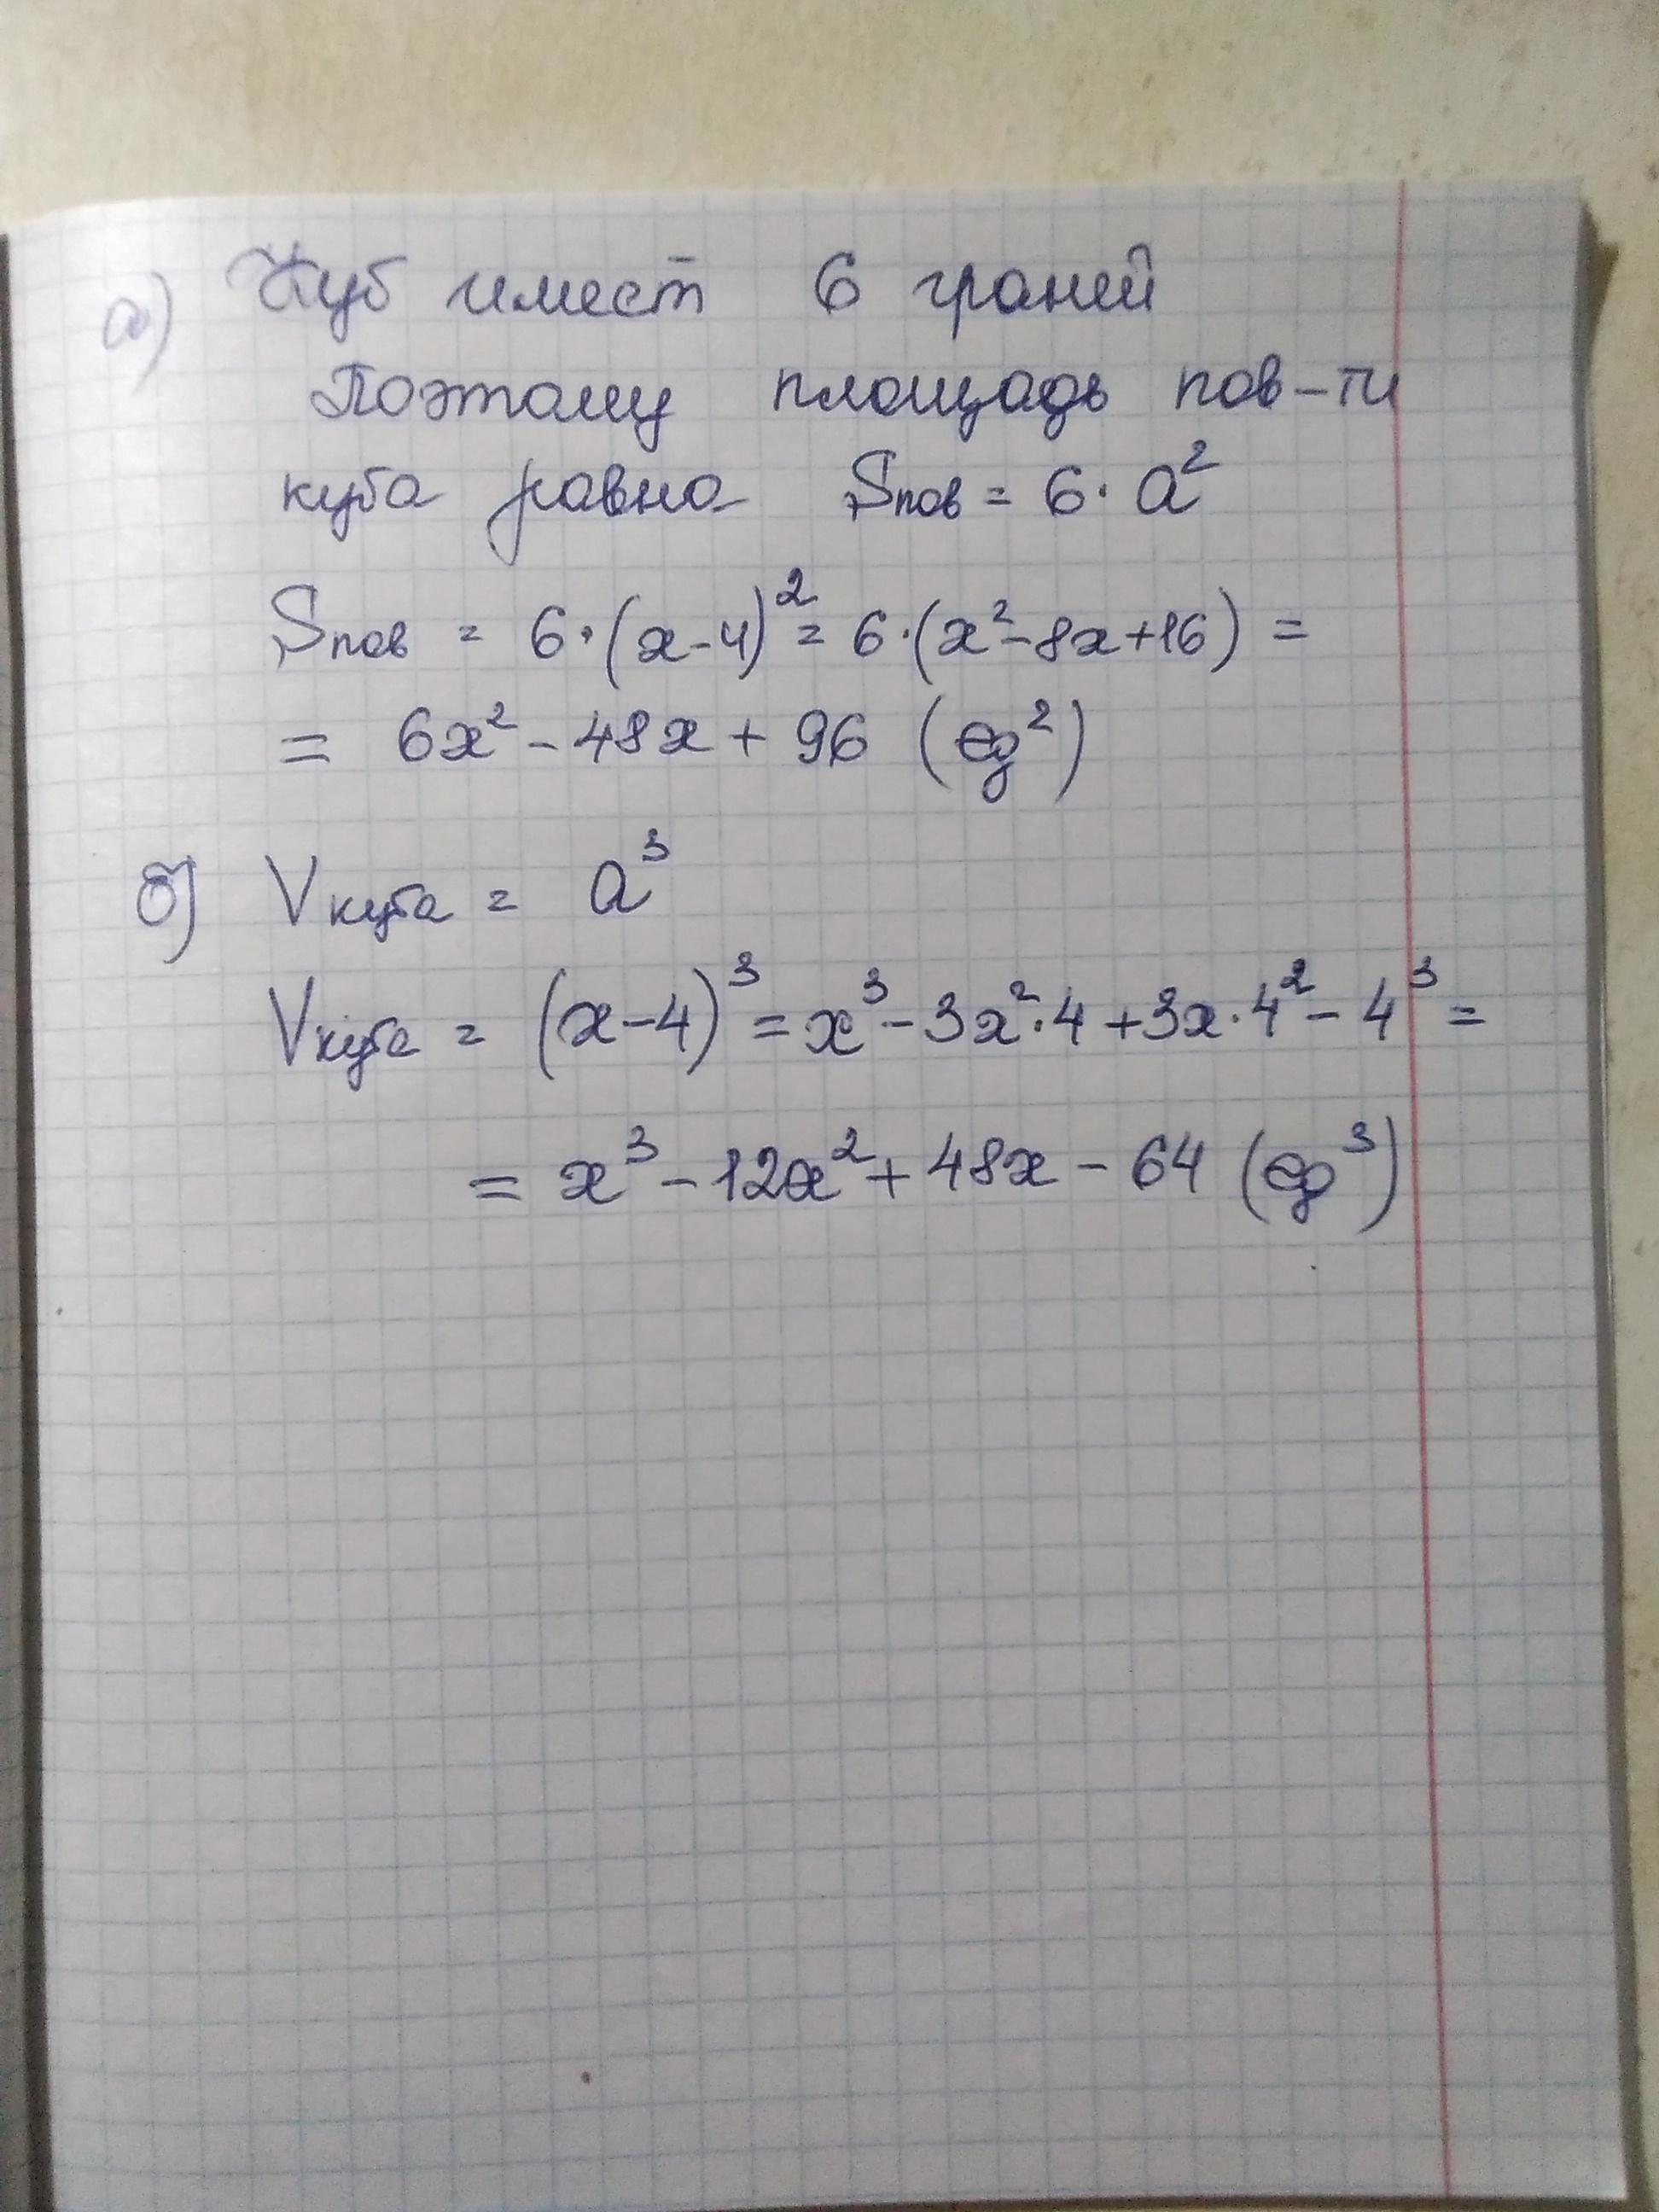 а) Куб имеет 6 граней
Поэтому площадь пов-ти
куба равна Sпов = 6 · a²
Sпов = 6·(x-4)² = 6·(x²-8x+16) =
= 6x² - 48x + 96 (ед²)
б) Vкуба = a³
Vкуба = (x-4)³ = x³ - 3x²·4 + 3x·4² - 4³ =
= x³ - 12x² + 48x - 64 (ед³)